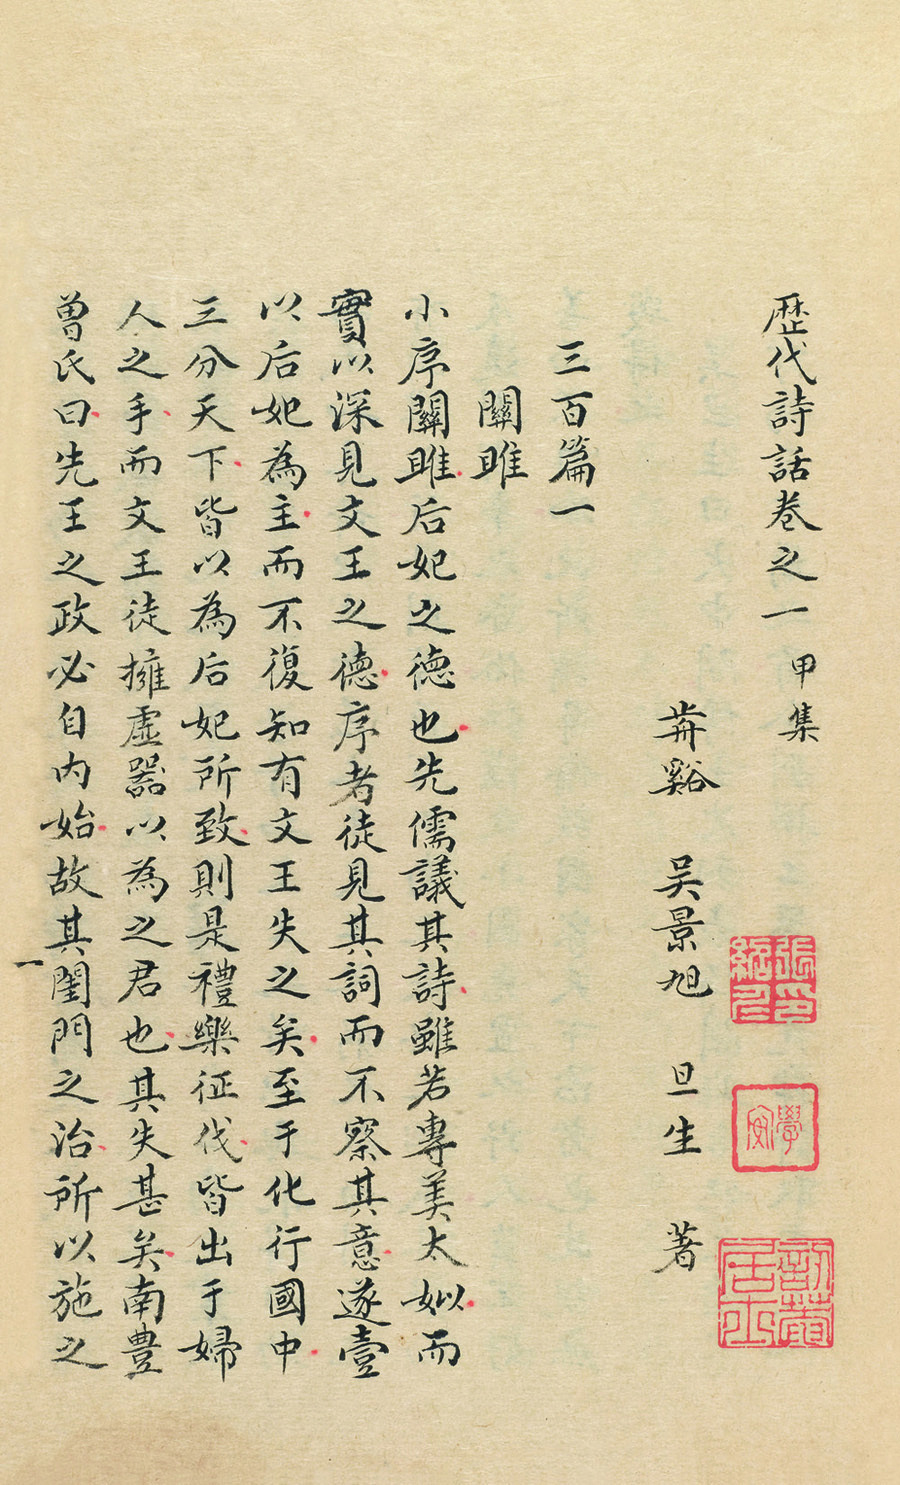 歴代詩話卷之一 甲集
歬谿 吳景旭 旦生 著
三百篇一
關雎
小序關雎后妃之德也先儒議其詩雖若專美太姒而
實以深見文王之德序者徒見其詞而不察其意遂壹
以后妃為主而不復知有文王失之矣至于化行國中
三分天下皆以為后妃所致則是禮樂征伐皆出于婦
人之手而文王徒擁虛器以為之君也其失甚矣南豊
曾氏曰先王之政必自內始故其閨門之治所以施之
訒葊居士